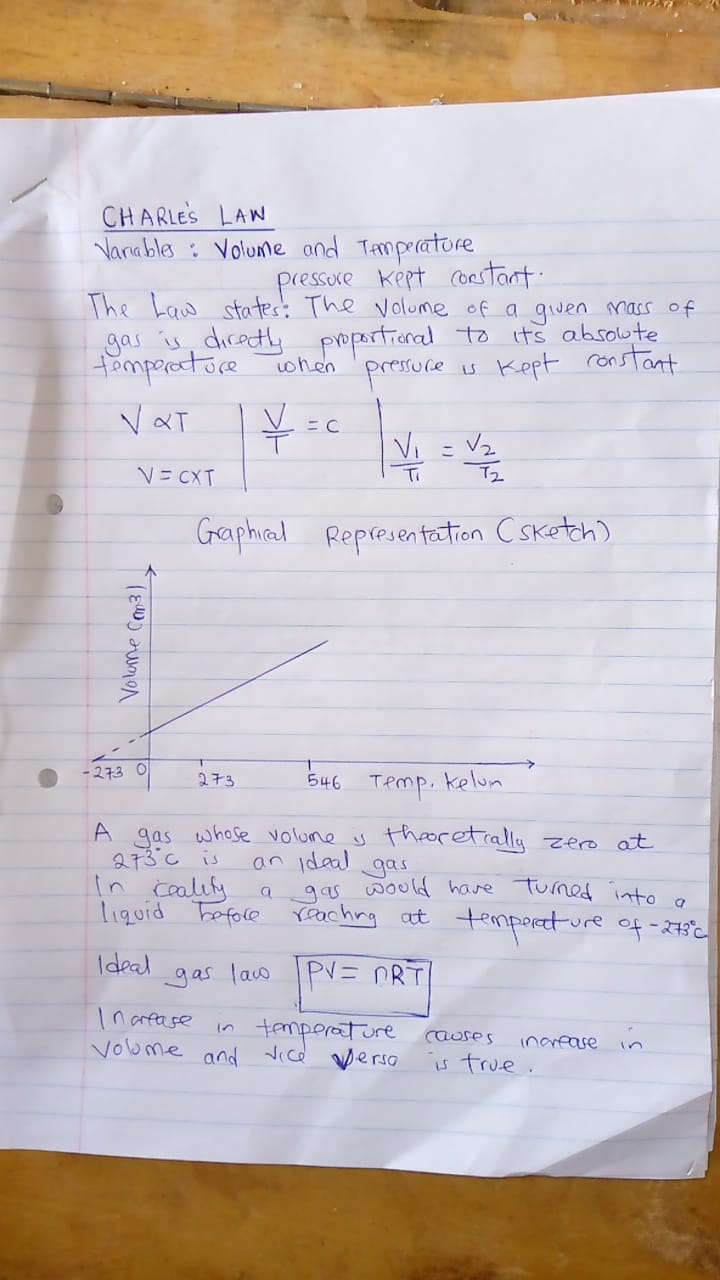 CHARLE'S LAW
Variables : Volume and Temperature
pressure kept constant.
The Law states: The Volume of a given mass of
gas is directly proportional to it's absolute
temperature when pressure is kept constant
V ∝ T | V/T = C | V1/T1 = V2/T2
V = C×T
Graphical Representation (Sketch)
Volume (cm3)
-273 0 273 546 Temp. Kelvin
A gas whose volume is theoretically zero at
273°C is an ideal gas
In reality a gas would have turned into a
liquid before reaching at temperature of -273°C
Ideal gas law PV = nRT
Increase in temperature causes increase in
Volume and vice versa is true.